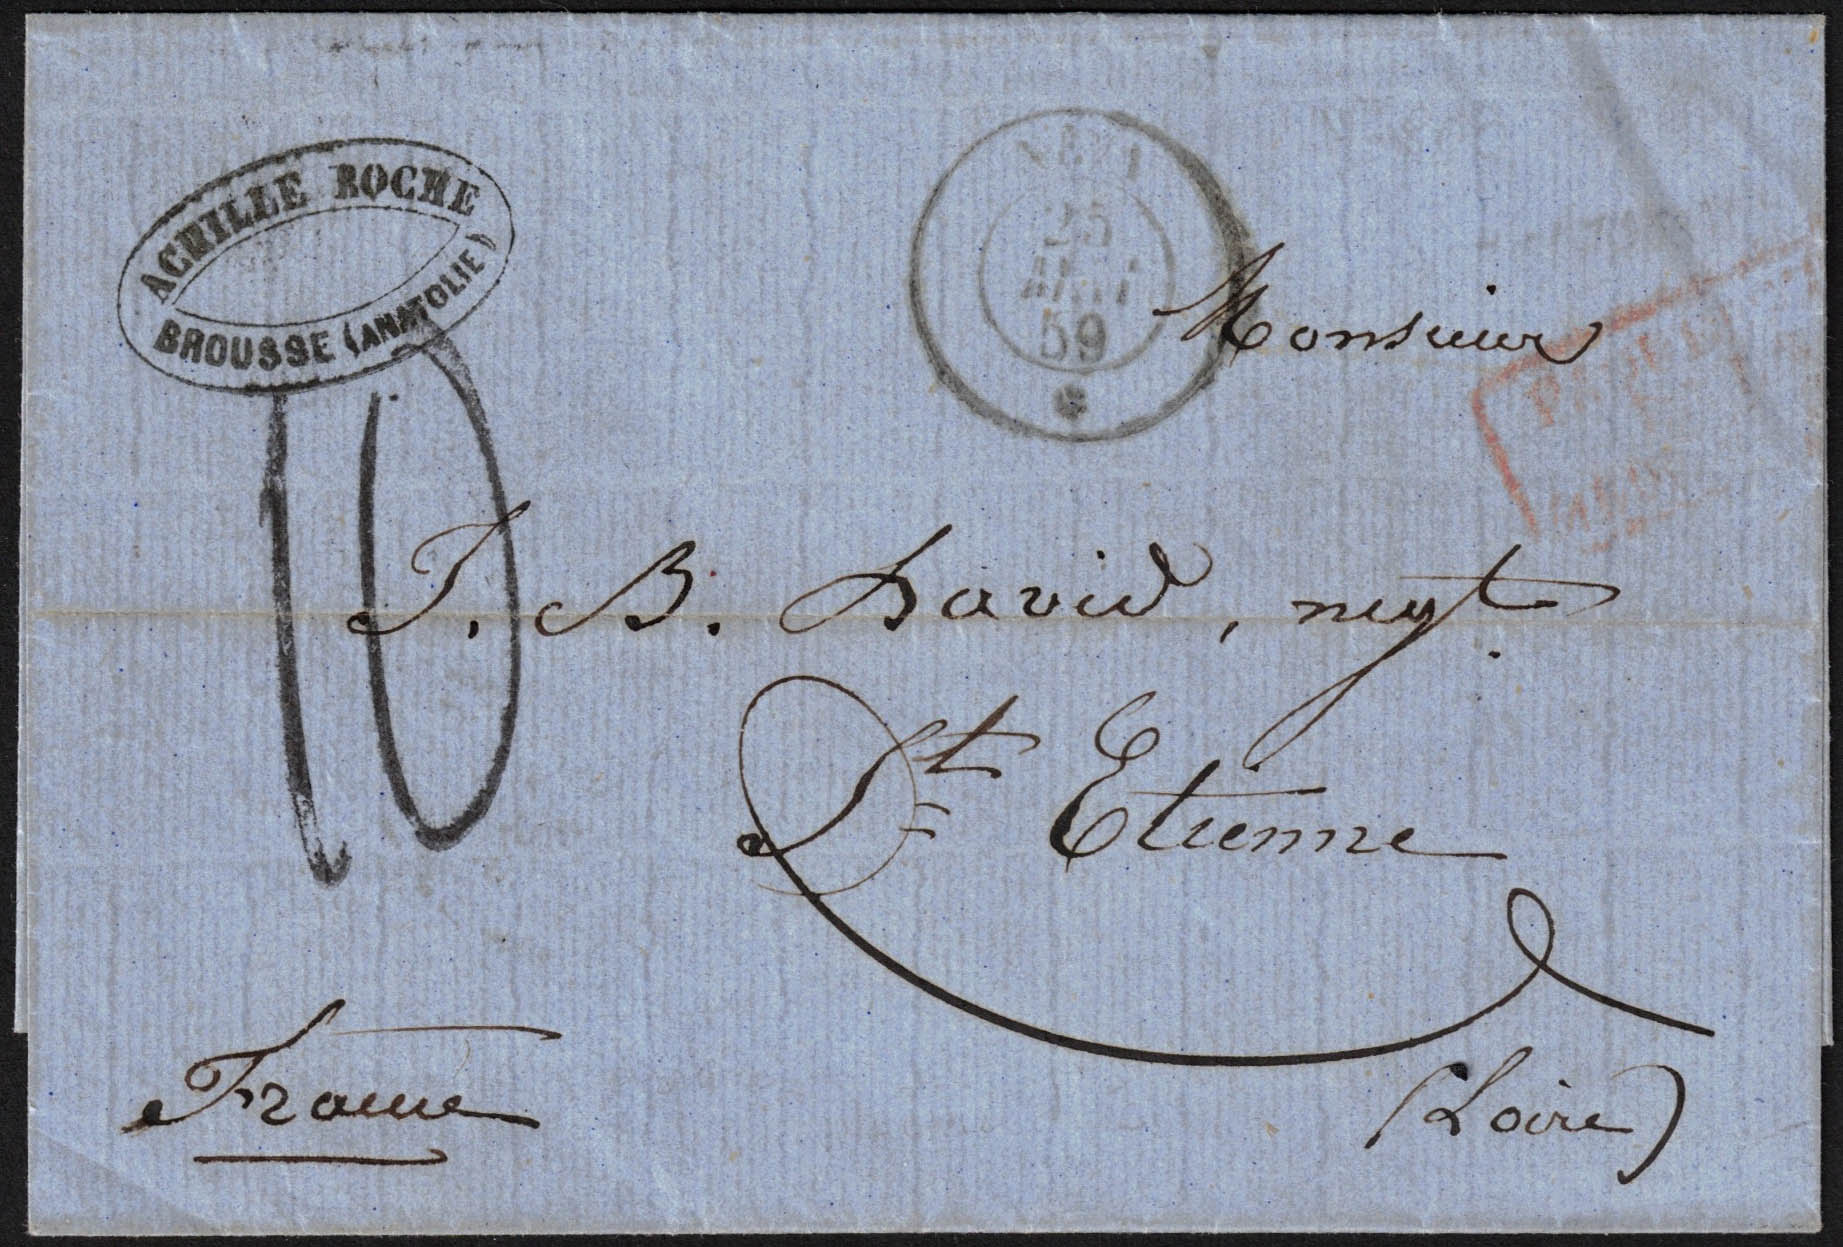 ACHILLE ROCHE
BROUSSE (ANATOLIE)
25
59
10
Monsieur
J. B. David, negt.
St Etienne
(Loire)
France